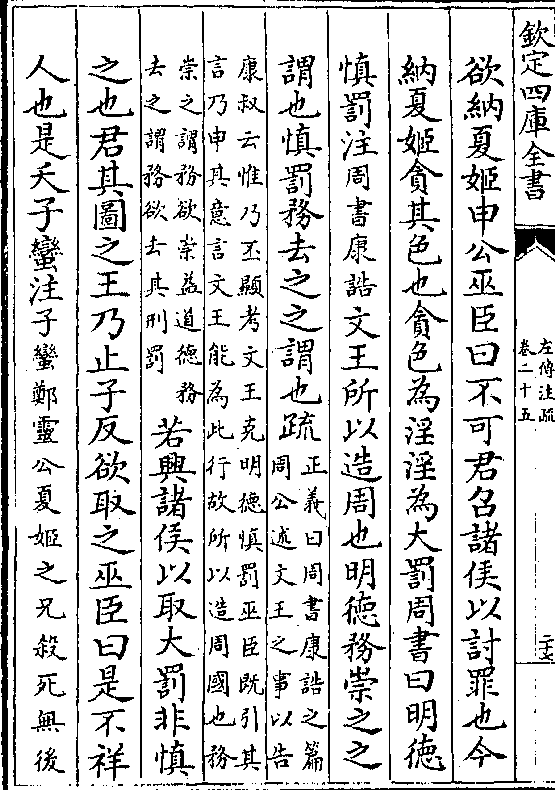 欽定四庫全書
左傳注疏
卷二十五
欲納夏姬申公巫臣曰不可君召諸侯以討罪也今
納夏姬貪其色也貪色為淫淫為大罰周書曰明德
慎罰注周書康誥文王所以造周也明德務崇之之
謂也慎罰務去之之謂也疏正義曰周書康誥之篇
周公述文王之事以告
康叔云惟乃丕顯考文王克明德慎罰巫臣既引其
言乃申其意言文王能為此行故所以造周國也務
崇之謂務欲崇益道德務
去之謂務欲去其刑罰
若興諸侯以取大罰非慎
之也君其圖之王乃止子反欲取之巫臣曰是不祥
人也是夭子蠻注子蠻鄭靈公夏姬之兄殺死無後